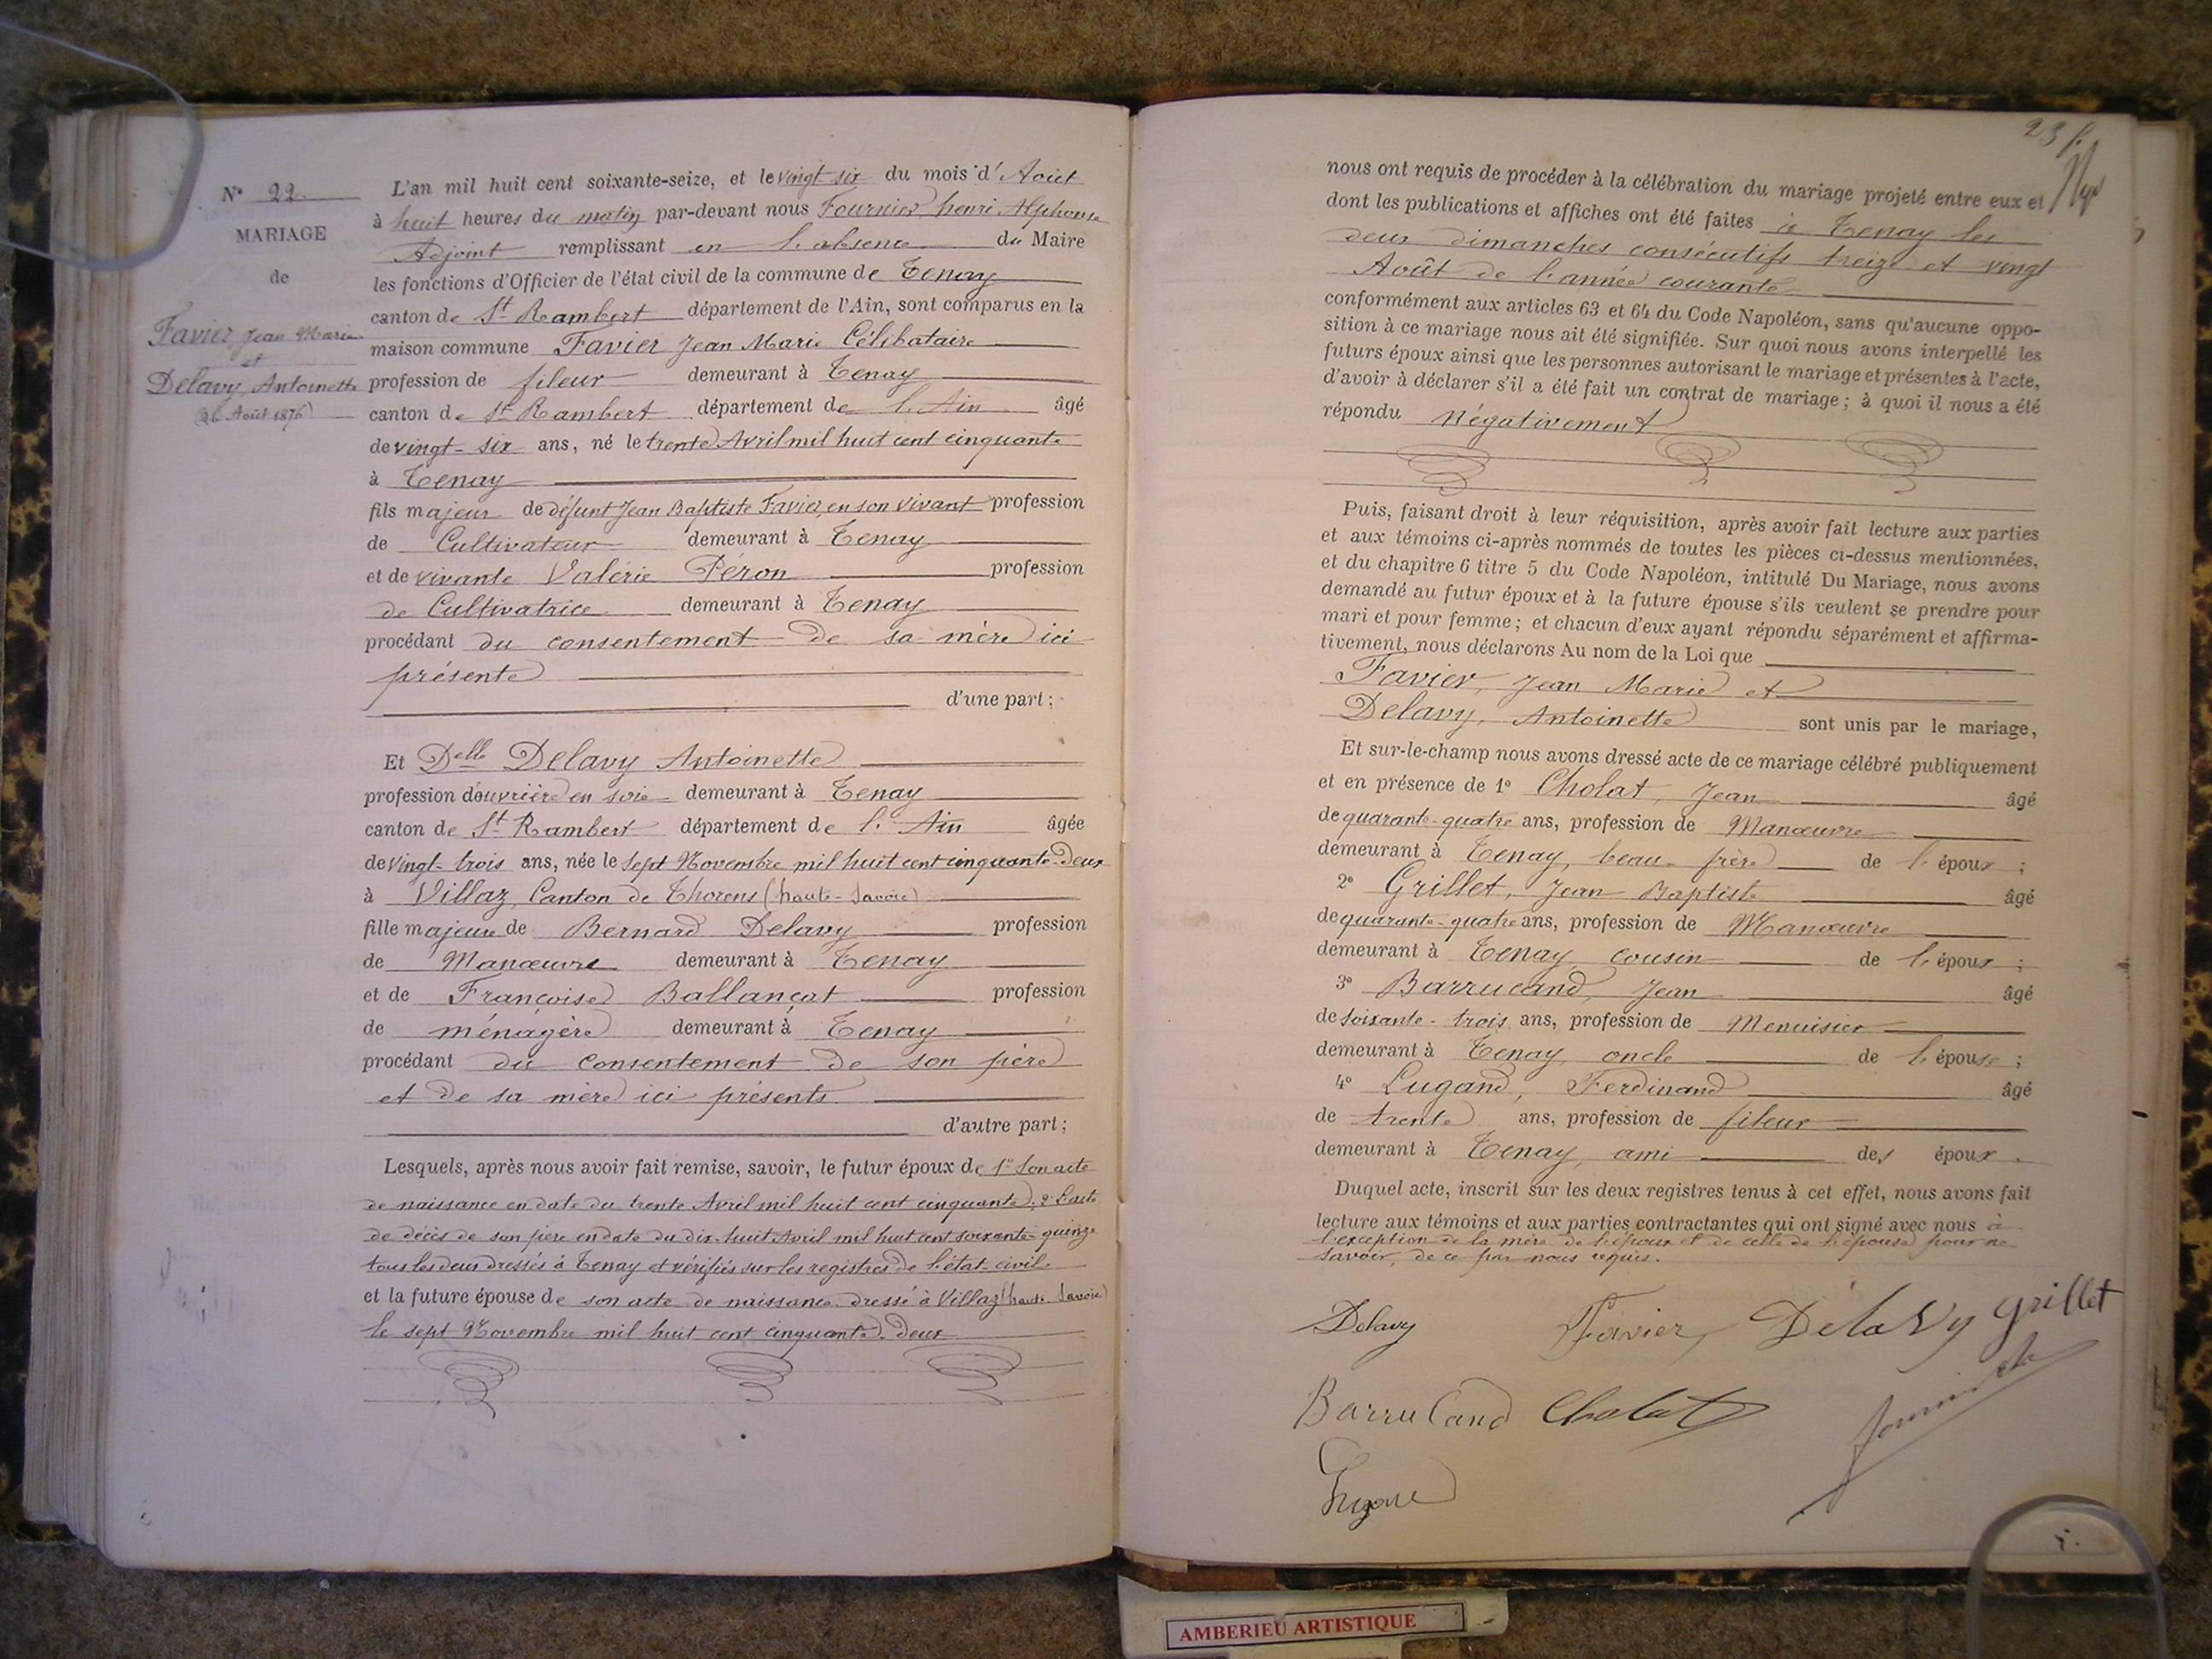 N° 22.
MARIAGE
de
Favier, Jean Marie
et
Delavy, Antoinette
(26 Août 1876)
L'an mil huit cent soixante-seize, et le vingt-six du mois d'Août
à huit heures du matin par-devant nous Fournier, henri Alphonse
Adjoint remplissant en l'absence du Maire
les fonctions d'Officier de l'état civil de la commune de Tenay
canton de St Rambert département de l'Ain, sont comparus en la
maison commune Favier Jean Marie Célibataire
profession de fileur demeurant à Tenay
canton de St Rambert département de l'Ain âgé
de vingt-six ans, né le trente Avril mil huit cent cinquante
à Tenay
fils majeur de défunt Jean Baptiste Favier, en son vivant profession
de Cultivateur demeurant à Tenay
et de vivante Valérie Péron profession
de Cultivatrice demeurant à Tenay
procédant du consentement de sa mère ici
présente
d'une part;
Et Delle Delavy Antoinette
profession d'ouvrière en soie demeurant à Tenay
canton de St Rambert département de l'Ain âgée
de vingt-trois ans, née le sept Novembre mil huit cent cinquante-deux
à Villaz, Canton de Thorens (haute-Savoie)
fille majeure de Bernard Delavy profession
de Manœuvre demeurant à Tenay
et de Françoise Ballançat profession
de ménagère demeurant à Tenay
procédant du consentement de son père
et de sa mère ici présents
d'autre part;
Lesquels, après nous avoir fait remise, savoir, le futur époux de 1° Son acte
de naissance en date du trente Avril mil huit cent cinquante; 2° l'acte
de décès de son père en date du dix-huit Avril mil huit cent soixante-quinze
tous les deux dressés à Tenay et vérifiés sur les registres de l'état-civil.
et la future épouse de son acte de naissance dressé à Villaz (haute Savoie)
le sept Novembre mil huit cent cinquante-deux
23
nous ont requis de procéder à la célébration du mariage projeté entre eux et
dont les publications et affiches ont été faites à Tenay les
deux dimanches consécutifs treize et vingt
Août de l'année courante
conformément aux articles 63 et 64 du Code Napoléon, sans qu'aucune oppo-
sition à ce mariage nous ait été signifiée. Sur quoi nous avons interpellé les
futurs époux ainsi que les personnes autorisant le mariage et présentes à l'acte,
d'avoir à déclarer s'il a été fait un contrat de mariage; à quoi il nous a été
répondu Négativement
Puis, faisant droit à leur réquisition, après avoir fait lecture aux parties
et aux témoins ci-après nommés de toutes les pièces ci-dessus mentionnées,
et du chapitre 6 titre 5 du Code Napoléon, intitulé Du Mariage, nous avons
demandé au futur époux et à la future épouse s'ils veulent se prendre pour
mari et pour femme; et chacun d'eux ayant répondu séparément et affirma-
tivement, nous déclarons Au nom de la Loi que
Favier, Jean Marie et
Delavy, Antoinette sont unis par le mariage,
Et sur-le-champ nous avons dressé acte de ce mariage célébré publiquement
et en présence de 1° Cholat, Jean âgé
de quarante-quatre ans, profession de Manœuvre
demeurant à Tenay, beau-frère de l'époux;
2° Grillet, Jean Baptiste âgé
de quarante-quatre ans, profession de Manœuvre
demeurant à Tenay cousin de l'époux;
3° Barrucand, Jean âgé
de soixante-trois ans, profession de Menuisier
demeurant à Tenay, oncle de l'épouse;
4° Lugand, Ferdinand âgé
de trente ans, profession de fileur
demeurant à Tenay, ami des époux.
Duquel acte, inscrit sur les deux registres tenus à cet effet, nous avons fait
lecture aux témoins et aux parties contractantes qui ont signé avec nous à
l'exception de la mère de l'époux et de celle de l'épouse pour ne
savoir, de ce par nous requis.
Delavy Favier Delavy grillet
Barrucand Cholat
AMBERIEU ARTISTIQUE